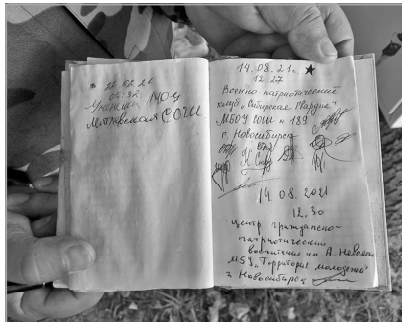 05:32
Ученики МОУ
СОШ
14.08.21г. ★
12 27
Военно патриотический
клуб „Сибирская Гвардия"
МБОУ СОШ № 189
г. Новосибирск
14.08.2021
12.30
центр гражданско-
патриотический
воспитания им А.
МБУ „Территория молодежи"
г. Новосибирск